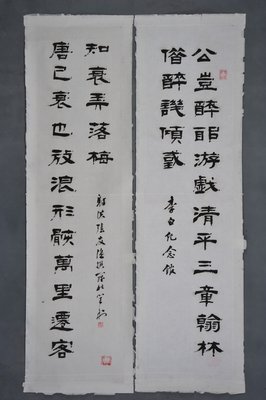 公豈醉耶游戲清平三章翰林
借醉譏傾或
李白紀念館
唐已衰也放浪形骸萬里遷客
知哀弄落梅